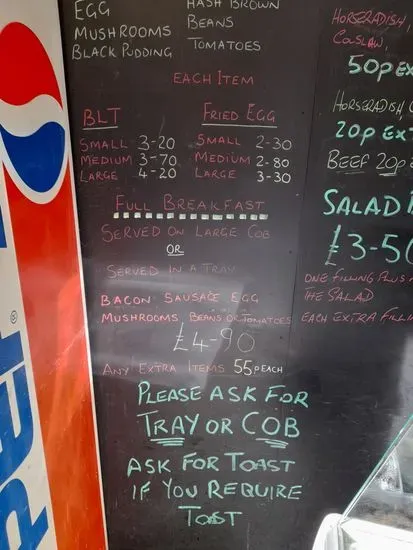 EGG
MUSHROOMS
BLACK PUDDING
HASH BROWN
BEANS
TOMATOES
EACH ITEM
BLT
SMALL 3-20
MEDIUM 3-70
LARGE 4-20
FRIED EGG
SMALL 2-30
MEDIUM 2-80
LARGE 3-30
FULL BREAKFAST
SERVED ON LARGE COB
OR
SERVED IN A TRAY
BACON SAUSAGE EGG
MUSHROOMS BEANS OR TOMATOES
£4-90
ANY EXTRA ITEMS 55P EACH
PLEASE ASK FOR
TRAY OR COB
ASK FOR TOAST
IF YOU REQUIRE
TOST
HORSERADISH,
COSLAW,
50p EX
HORSERADISH
20p EX
BEEF 20p
SALAD
£3-50
ONE FILLING PLUS
THE SALAD
EACH EXTRA FILLIN
PEPSI
®